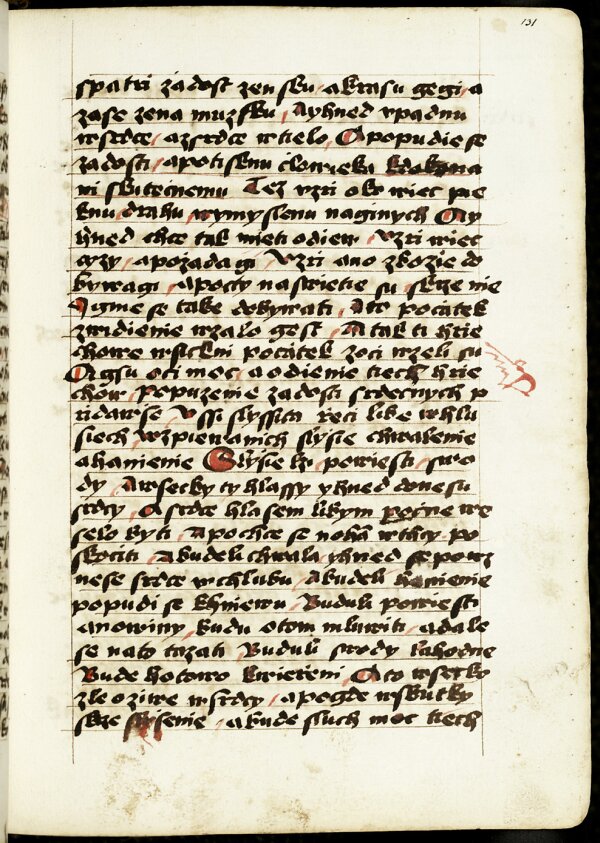 131
spatri zadost zensku a krasu gegi a
zase zena muzsku Ayhned vpadnu
w srdce a z srdce w tielo A popudie se
zadosti a potisknu czlowieka k dokona
ni skutecnemu Tez vzri oko wiec pie
knu drahu wymyslenu na ginych Ay
hned chce tak mieti odiew Vzri wiec
cyzy a pozada gi Vzri ano zbozie do
bywagi a pocty na swietie su skrze nie
A gme se take dobywati A to pocatek
zwidienie wzalo gest A tak ti hrie
chowe wsickni pocatek z oci wzeli su
A gsu oci moc a odienie tiech hrie
chow popuzenie zadosti srdecnych p
ridawse Vssi slyssita reci libe w hlu
siech w zpiewanich slysie chwalenie
a hanienie Slysie li powiesti swo
dy A wsecky ty hlassy yhned donesu
srdcy A srdce hlasem libym pocne we
selo byti A pochce se noha w thcy po
skociti A budeli chwala yhned se powz
nese srdce w chlubu A budeli hanienie
popudi se k hniewu Buduli powiesti
a nowiny budu o tom mluwiti a dale
se na to tazati Buduli swody lahodne
Bude hotowo k wierzeni A to wsecky
zle oziwe w srdcy a pogde w skutky
skrze slysenie a bude sluch moc tiech